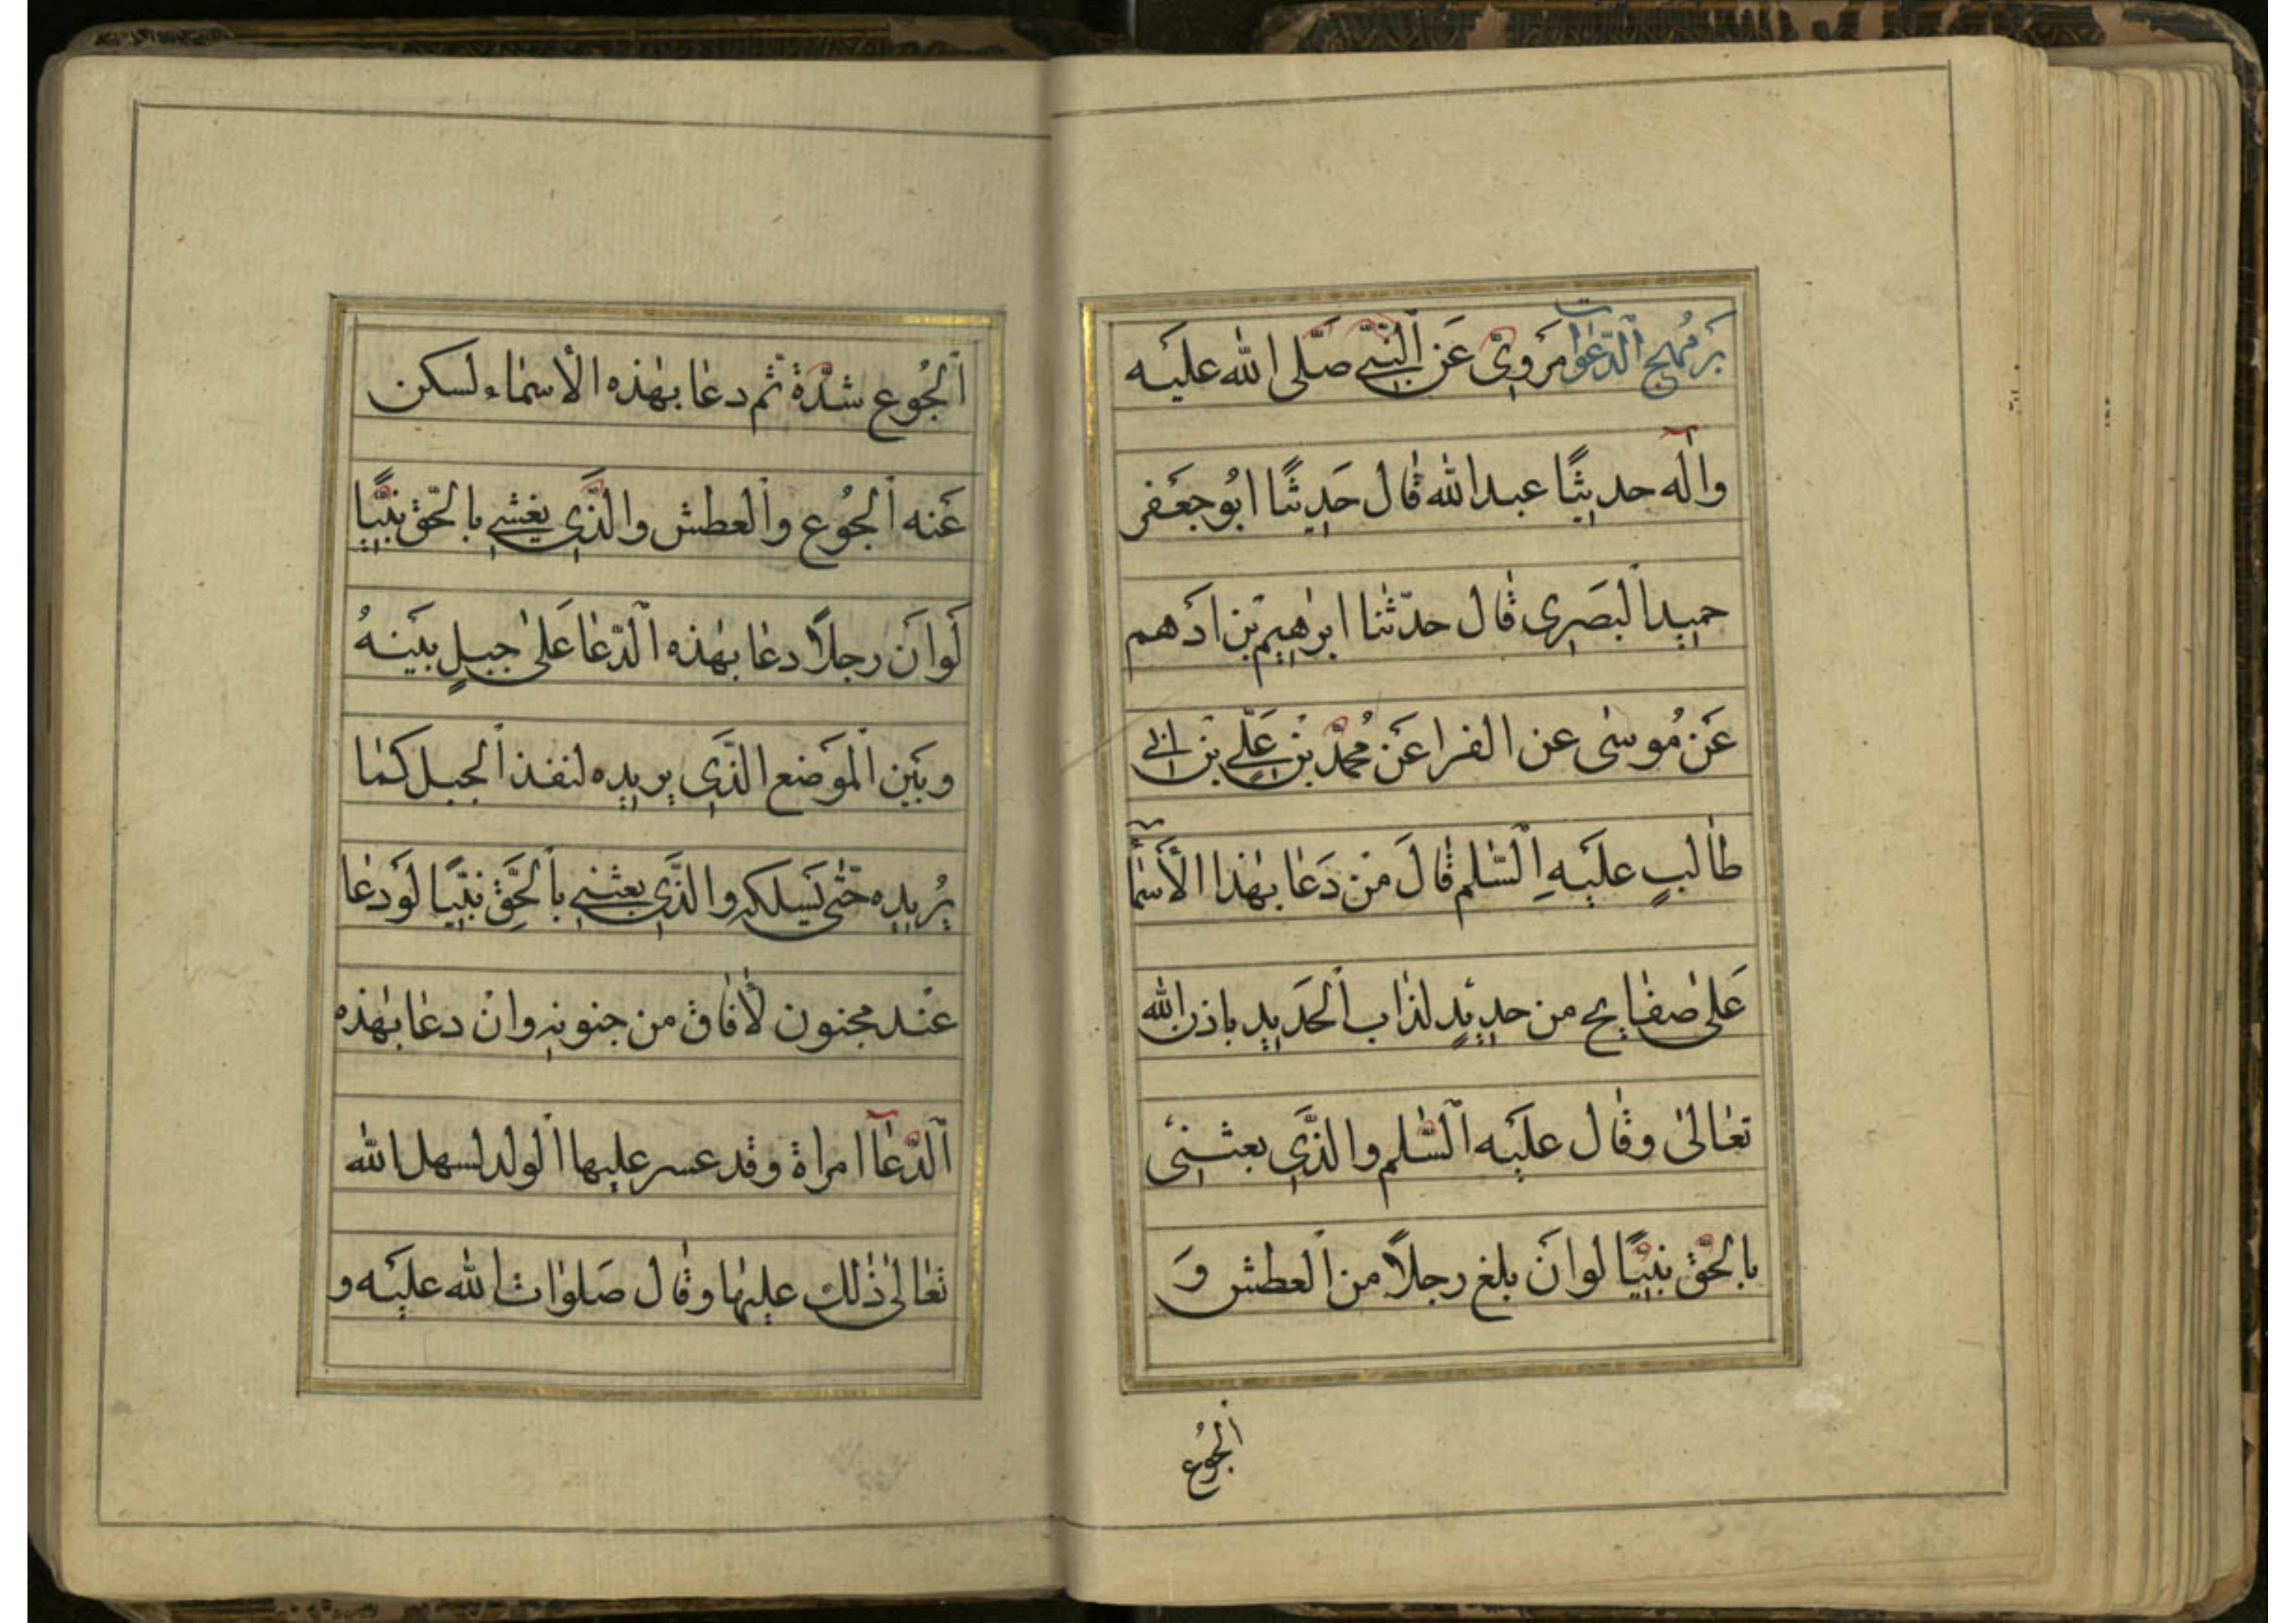 بر مهج الدعوات مروىّ عَن النّبى صَلّى الله عليَه
واٰله حديثًا عبد الله قٰال حَديثًا ابُو جعَفر
حميد البَصَرِى قٰال حدّثنا ابرٰهيم بن ادَهم
عَن مُوسٰى عن الفرا عَن مُحمّد بن عَلّى بن ابى
طٰالبٍ عليَه السّٰلم قٰالَ مَن دَعٰا بهٰذا الأسَمٰاۤ
عَلىٰ صفٰايح من حديَدٍ لذاب الحَديد باذن الله
تعٰالىٰ وقٰال عليَه السّٰلم والذَّى بعثنىَ
بالحّق نبيًّا لوانَ بلغ رجلاً من العطش وَ
الجُوع
الجُوع شدّة ثم دعٰا بهٰذه الأسمٰاء لسكن
عَنه الجُوع والعطش والذَّى بغشى بالحّق نبيًّا
لَوانَ رجلاً دعٰا بهٰذه الّدعٰا عَلىٰ جبلٍ بيَنهُ
وبيَن الموَضع الذَّى يريده لنفذ الجبل كمٰا
يُريده حتّٰى يَسلكه والذَّى بعثنى بالحَّق نبيًّا لوَ دعٰا
عنَد مجنون لأفٰاق من جنونه وانَ دعٰا بهٰذه
الدّعٰآ امراة وقد عسر عليها الولد لسهل الله
تعٰالىٰ ذٰلك عليهٰا وقٰال صَلوٰات الله عليَه و